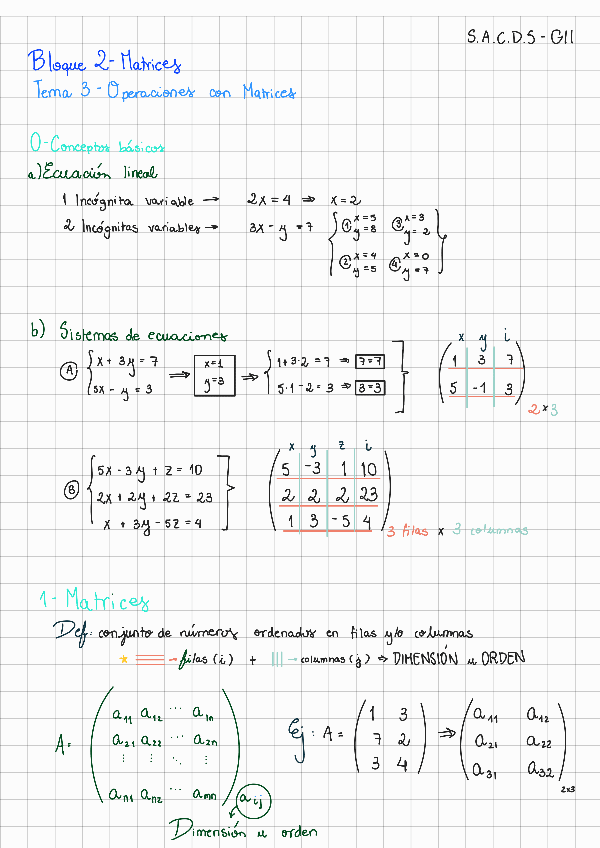 S.A.C.D.S - G11
Bloque 2 - Matrices
Tema 3 - Operaciones con Matrices
0 - Conceptos básicos
a) Ecuación lineal
1 Incógnita variable → 2x = 4 ⇒ x = 2
2 Incógnitas variables → 3x - y = 7 { ① x = 5 y = 8 ③ x = 3 y = 2
② x = 4 y = 5 ④ x = 0 y = 7 }
b) Sistemas de ecuaciones
Ⓐ { x + 3y = 7 ⇒ x = 1 ⇒ { 1 + 3·2 = 7 ⇒ 7 = 7
5x - y = 3 y = 3 5·1 - 2 = 3 ⇒ 3 = 3
x y i
1 3 7
5 -1 3
2 x 3
Ⓑ { 5x - 3y + z = 10
2x + 2y + 2z = 23
x + 3y - 5z = 4
x y z i
5 -3 1 10
2 2 2 23
1 3 -5 4
3 filas x 3 columnas
1 - Matrices
Def: conjunto de números ordenados en filas y/o columnas
★ → filas (i) + ||| → columnas (j) ⇒ DIMENSIÓN u ORDEN
A = ( a11 a12 ... a1n
a21 a22 ... a2n
⋮ ⋮ ⋱ ⋮
an1 an2 ... amn ) aij
Dimensión u orden
Ej: A = ( 1 3
7 2
3 4 ) ⇒ ( a11 a12
a21 a22
a31 a32 ) 2x3